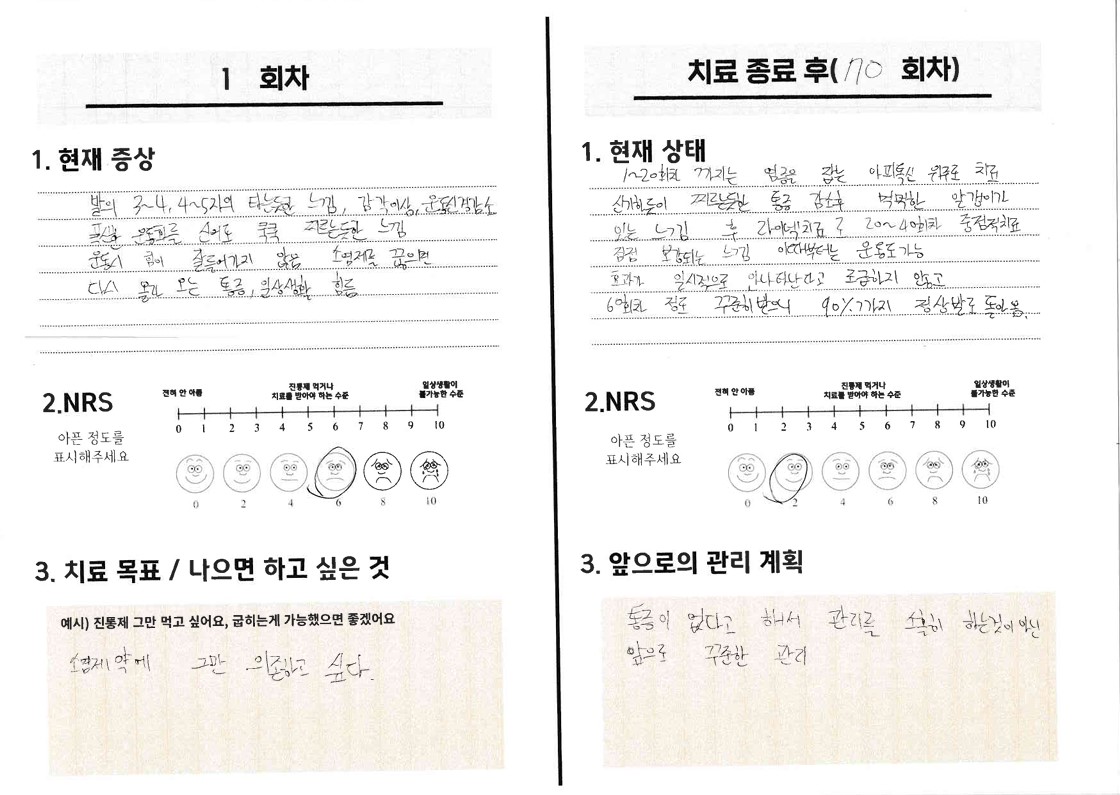 1 회차
1. 현재 증상
발의 3~4, 4~5지의 타는듯한 느낌, 감각이상, 운동신경감소
푹신한 운동화를 신어도 쿡쿡 찌르는듯한 느낌
운동시 힘이 잘들어가지 않음 소염제를 끊으면
다시 몰려 오는 통증, 일상생활 힘듦
2.NRS
아픈 정도를
표시해주세요
전혀 안 아픔
진통제 먹거나
치료를 받아야 하는 수준
일상생활이
불가능한 수준
0 1 2 3 4 5 6 7 8 9 10
0 2 4 6 8 10
3. 치료 목표 / 나으면 하고 싶은 것
예시) 진통제 그만 먹고 싶어요, 굽히는게 가능했으면 좋겠어요
소염제 약에 그만 의존하고 싶다.
치료 종료 후( 70 회차)
1. 현재 상태
1~20회차 까지는 염증을 잡는 위주로 치료
신기하듯이 찌르는듯한 통증 감소후 먹먹한
있는 느낌 후 라이넥치료로 20~40회차 중점적치료
점점 보강되는 느낌 이때부터는 운동도가능
효과가 일시적으로 안나타난다고 조급하지 않고
60회차 정도 꾸준히받으니 90%까지 정상발로 돌아옴.
2.NRS
아픈 정도를
표시해주세요
전혀 안 아픔
진통제 먹거나
치료를 받아야 하는 수준
일상생활이
불가능한 수준
0 1 2 3 4 5 6 7 8 9 10
0 2 4 6 8 10
3. 앞으로의 관리 계획
통증이 없다고 해서 관리를 소홀히 하는것이 아닌
앞으로 꾸준한 관리